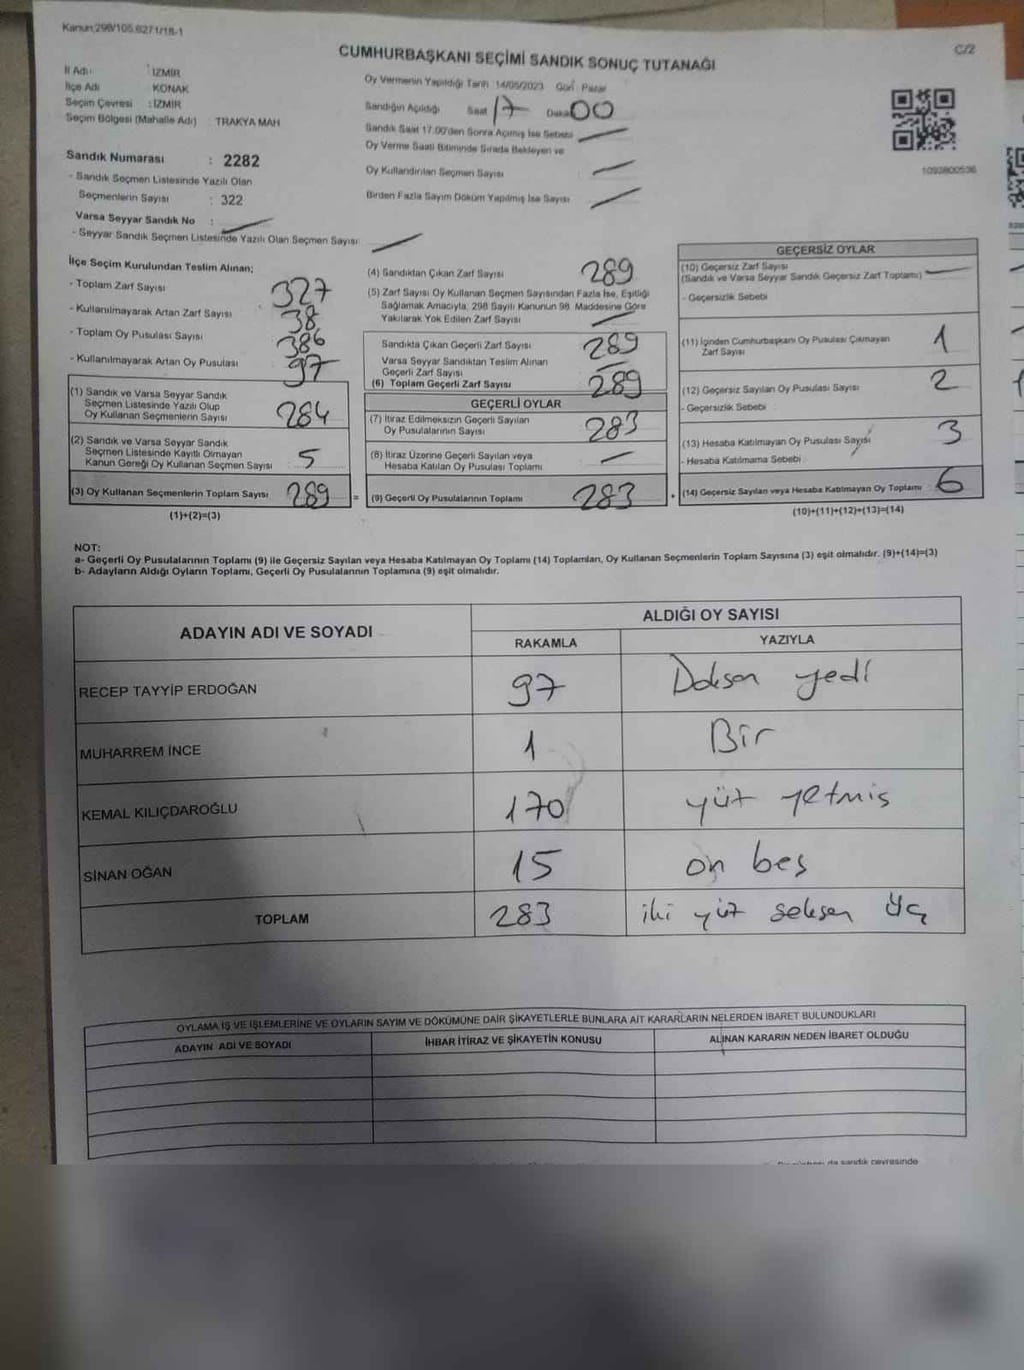 Kanun:298/105,6271/18-1
C/2
CUMHURBAŞKANI SEÇİMİ SANDIK SONUÇ TUTANAĞI
İl Adı : İZMİR
İlçe Adı KONAK
Seçim Çevresi : İZMİR
Seçim Bölgesi (Mahalle Adı) TRAKYA MAH
Sandık Numarası : 2282
- Sandık Seçmen Listesinde Yazılı Olan
Seçmenlerin Sayısı : 322
Varsa Seyyar Sandık No :
- Seyyar Sandık Seçmen Listesinde Yazılı Olan Seçmen Sayısı
Oy Vermenin Yapıldığı Tarih 14/05/2023 Gün: Pazar
Sandığın Açıldığı Saat 17 Dakika 00
Sandık Saat 17.00'den Sonra Açılmış İse Sebebi
Oy Verme Saati Bitiminde Sırada Bekleyen ve
Oy Kullandırılan Seçmen Sayısı
Birden Fazla Sayım Döküm Yapılmış İse Sayısı
1093800536
İlçe Seçim Kurulundan Teslim Alınan;
- Toplam Zarf Sayısı 327
- Kullanılmayarak Artan Zarf Sayısı 38
- Toplam Oy Pusulası Sayısı 386
- Kullanılmayarak Artan Oy Pusulası 97
(1) Sandık ve Varsa Seyyar Sandık
Seçmen Listesinde Yazılı Olup
Oy Kullanan Seçmenlerin Sayısı 284
(2) Sandık ve Varsa Seyyar Sandık
Seçmen Listesinde Kayıtlı Olmayan
Kanun Gereği Oy Kullanan Seçmen Sayısı 5
(3) Oy Kullanan Seçmenlerin Toplam Sayısı 289 =
(1)+(2)=(3)
(4) Sandıktan Çıkan Zarf Sayısı 289
(5) Zarf Sayısı Oy Kullanan Seçmen Sayısından Fazla İse, Eşitliği
Sağlamak Amacıyla, 298 Sayılı Kanunun 98. Maddesine Göre
Yakılarak Yok Edilen Zarf Sayısı
Sandıkta Çıkan Geçerli Zarf Sayısı 289
Varsa Seyyar Sandıktan Teslim Alınan
Geçerli Zarf Sayısı
(6) Toplam Geçerli Zarf Sayısı 289
GEÇERLİ OYLAR
(7) İtiraz Edilmeksizin Geçerli Sayılan
Oy Pusulalarının Sayısı 283
(8) İtiraz Üzerine Geçerli Sayılan veya
Hesaba Katılan Oy Pusulası Toplamı
(9) Geçerli Oy Pusulalarının Toplamı 283 +
GEÇERSİZ OYLAR
(10) Geçersiz Zarf Sayısı
(Sandık ve Varsa Seyyar Sandık Geçersiz Zarf Toplamı)
- Geçersizlik Sebebi
(11) İçinden Cumhurbaşkanı Oy Pusulası Çıkmayan
Zarf Sayısı 1
(12) Geçersiz Sayılan Oy Pusulası Sayısı 2
- Geçersizlik Sebebi
(13) Hesaba Katılmayan Oy Pusulası Sayısı 3
- Hesaba Katılmama Sebebi
(14) Geçersiz Sayılan veya Hesaba Katılmayan Oy Toplamı 6
(10)+(11)+(12)+(13)=(14)
NOT:
a- Geçerli Oy Pusulalarının Toplamı (9) ile Geçersiz Sayılan veya Hesaba Katılmayan Oy Toplamı (14) Toplamları, Oy Kullanan Seçmenlerin Toplam Sayısına (3) eşit olmalıdır. (9)+(14)=(3)
b- Adayların Aldığı Oyların Toplamı, Geçerli Oy Pusulalarının Toplamına (9) eşit olmalıdır.
ADAYIN ADI VE SOYADI
ALDIĞI OY SAYISI
RAKAMLA YAZIYLA
RECEP TAYYİP ERDOĞAN 97 Doksan yedi
MUHARREM İNCE 1 Bir
KEMAL KILIÇDAROĞLU 170 yüz yetmiş
SİNAN OĞAN 15 on beş
TOPLAM 283 iki yüz seksen üç
OYLAMA İŞ VE İŞLEMLERİNE VE OYLARIN SAYIM VE DÖKÜMÜNE DAİR ŞİKAYETLERLE BUNLARA AİT KARARLARIN NELERDEN İBARET BULUNDUKLARI
ADAYIN ADI VE SOYADI İHBAR İTİRAZ VE ŞİKAYETİN KONUSU ALINAN KARARIN NEDEN İBARET OLDUĞU
da sandık çevresinde